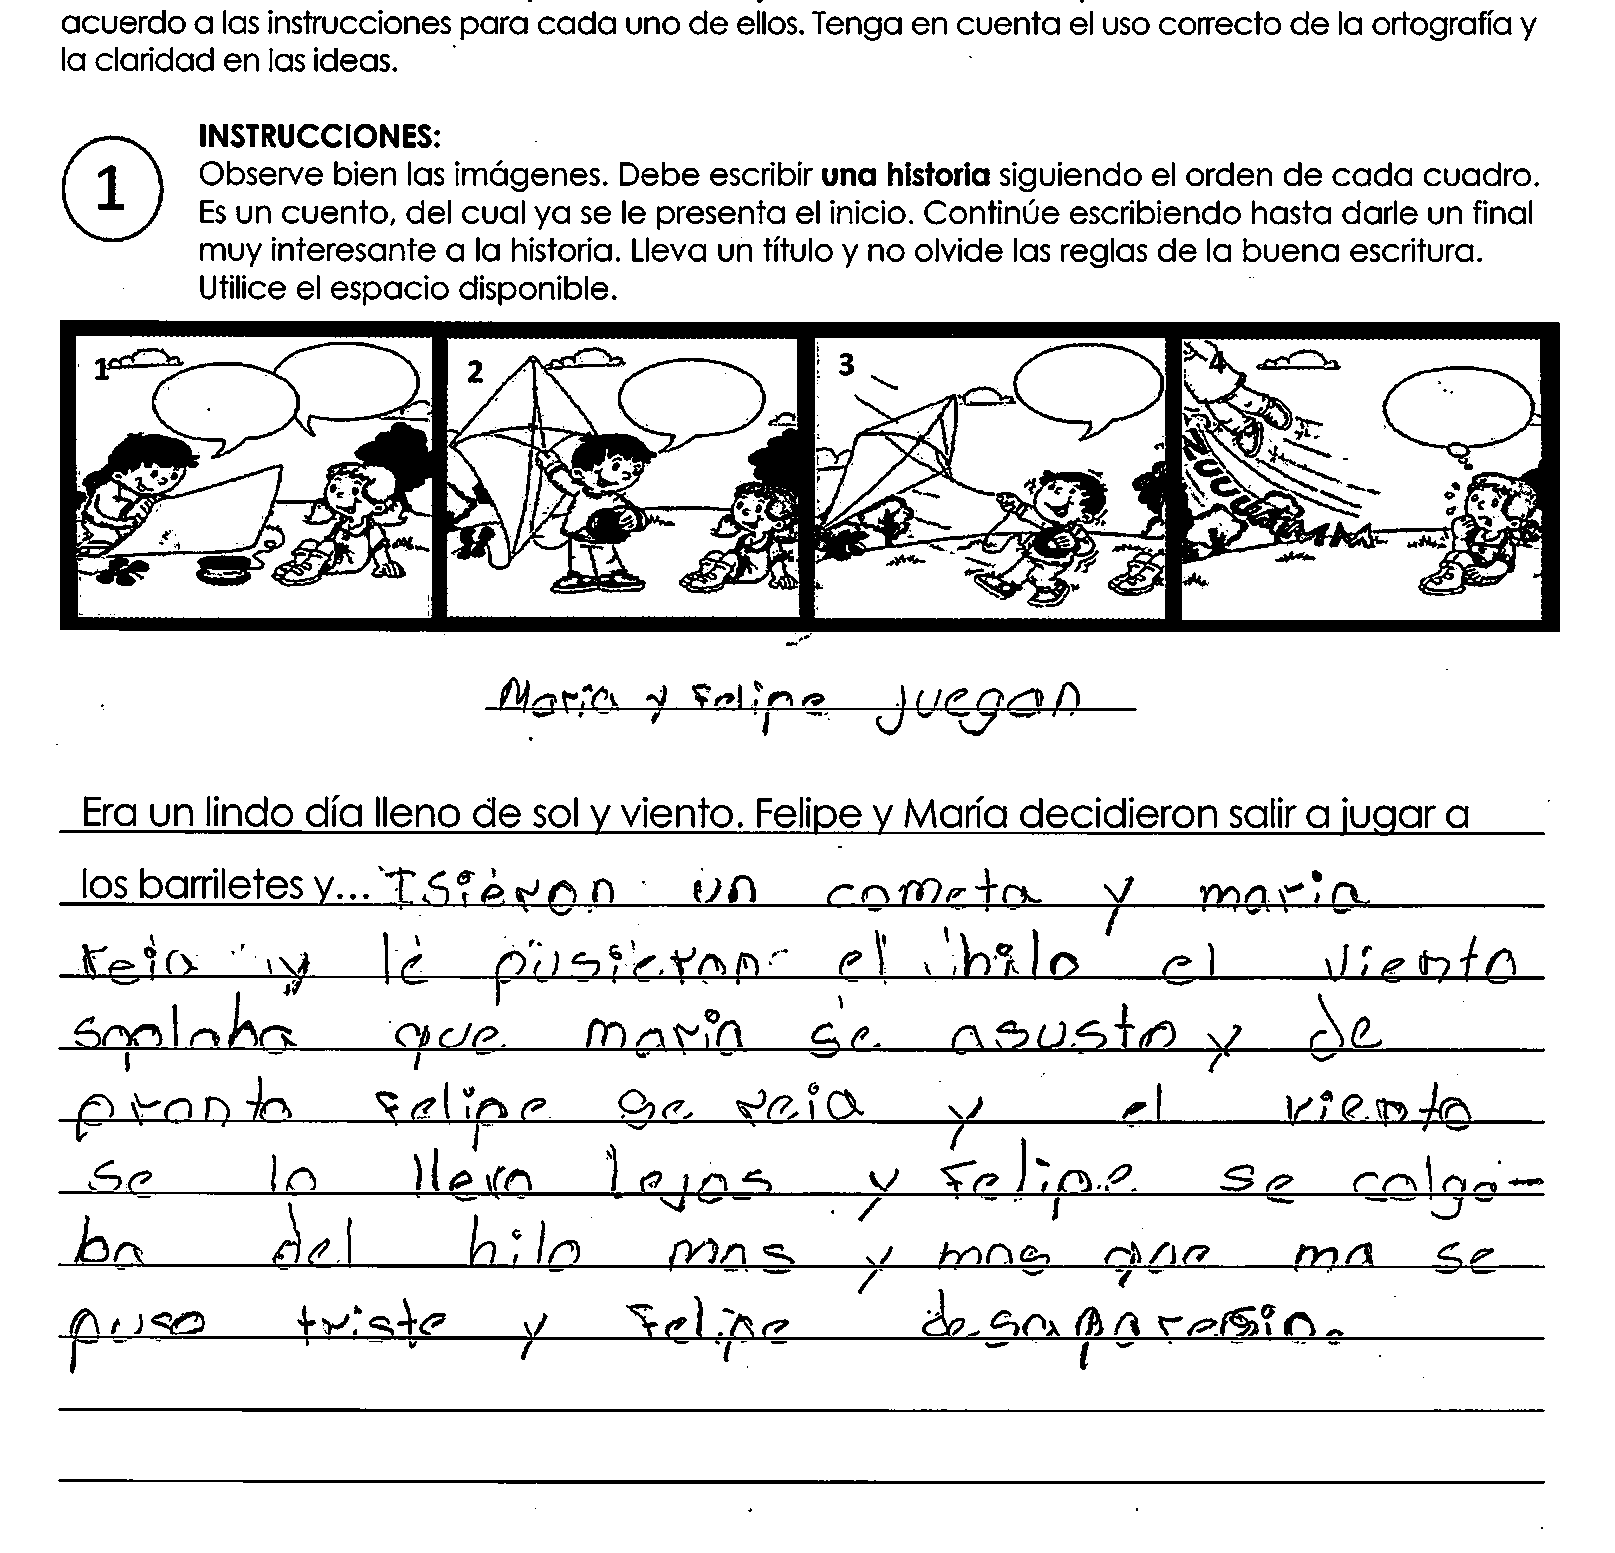 acuerdo a las instrucciones para cada uno de ellos. Tenga en cuenta el uso correcto de la ortografía y
la claridad en las ideas.
1
INSTRUCCIONES:
Observe bien las imágenes. Debe escribir una historia siguiendo el orden de cada cuadro.
Es un cuento, del cual ya se le presenta el inicio. Continúe escribiendo hasta darle un final
muy interesante a la historia. Lleva un título y no olvide las reglas de la buena escritura.
Utilice el espacio disponible.
1 2 3 4
María y Felipe juegan
Era un lindo día lleno de sol y viento. Felipe y María decidieron salir a jugar a
los barriletes y... Isieron un cometa y maria
reia y le pusieron el hilo el viento
soplaba que maria se asusto y de
pronto Felipe se reia y el viento
se lo llevo lejos y Felipe se colgo-
ba del hilo mas y mas que ma se
puso triste y Felipe desaparesio.